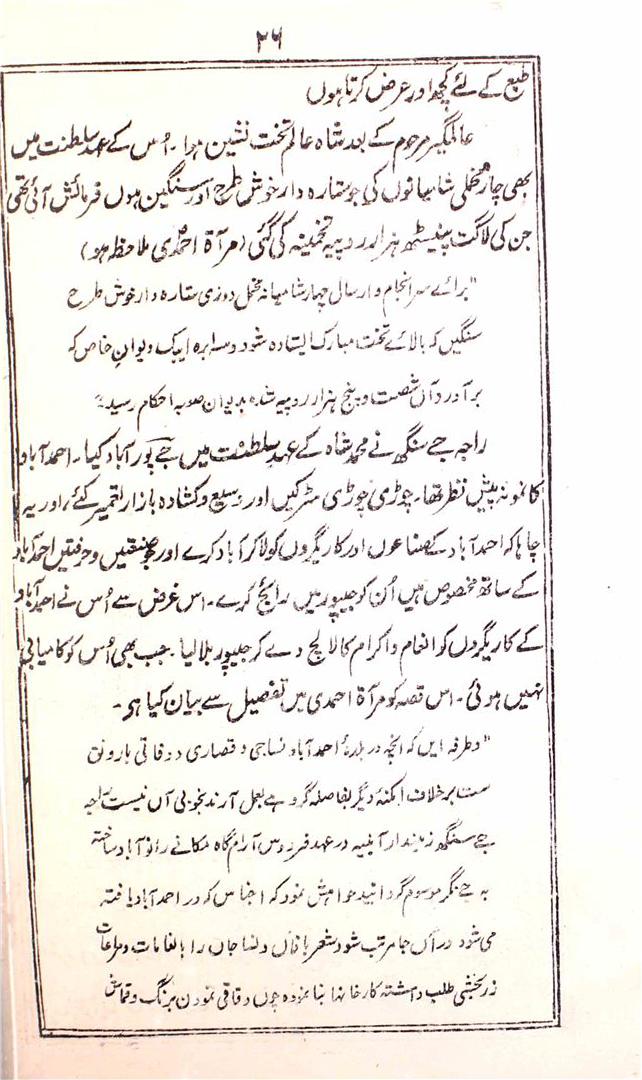 ۲۶
طبع کے لئے کچھ اور عرض کرتا ہوں
عالمگیر مرحوم کے بعد شاہ عالم تخت نشین ہوا۔ اُس کے عہد سلطنت میں
بھی چار مخملی شامیانوں کی جو ستارہ دار خوش طرح اور سنگین ہوں فرمائش آئی تھی
جن کی لاگت پینسٹھ ہزار روپیہ تخمینہ کی گئی (مرآۃ احمدی ملاحظہ ہو)
"برائے سرانجام و ارسال چہار شامیانہ مخمل دوزی ستارہ دار خوش طرح
سنگیں کہ بالائے تخت مبارک ایستادہ شود و سراپردہ ایک دیوان خاص کہ
برآورد آں شصت و پنج ہزار روپیہ شدہ بدیوان صوبہ احکام رسید"
راجہ جے سنگھ نے محمد شاہ کے عہد سلطنت میں جے پور آباد کیا۔ احمد آباد
کا نمونہ پیش نظر تھا۔ چوڑی چوڑی سڑکیں اور وسیع و کشادہ بازار تعمیر کئے، اور یہ
چاہا کہ احمد آباد کے صناعوں اور کاریگروں کو لاکر آباد کرے اور جو صنعتیں و حرفتیں احمد آباد
کے ساتھ مخصوص ہیں اُن کو جیپور میں رائج کرے۔ اس غرض سے اُس نے احمد آباد
کے کاریگروں کو انعام و اکرام کا لالچ دے کر جیپور بلا لیا۔ جب بھی اُس کو کامیابی
نہیں ہوئی۔ اس قصہ کو مرآۃ احمدی میں تفصیل سے بیان کیا ہی۔
"و طرفہ ایں کہ انچہ در بلدۂ احمد آباد نساجی و قصاری و دقاقی بارونق
ست برخلاف امکنۂ دیگر بفاصلہ گروہے بعمل آرند بخوبی آں نیست راجہ
جے سنگھ زمیندار آنبیر در عہد فردوس آرام گاہ مکانے را نو آباد ساختہ
بہ جے نگر موسوم گردانید خواہش نمود کہ اجناس کہ در احمد آباد یافتہ
می شود در آں جا مرتب شود شعر بافاں و نساجاں را بانعامات و مراعات
زر بخشی طلب داشتہ کارخانہا بنا نمودہ چوں دقاقی نمودن برنگ و قماش